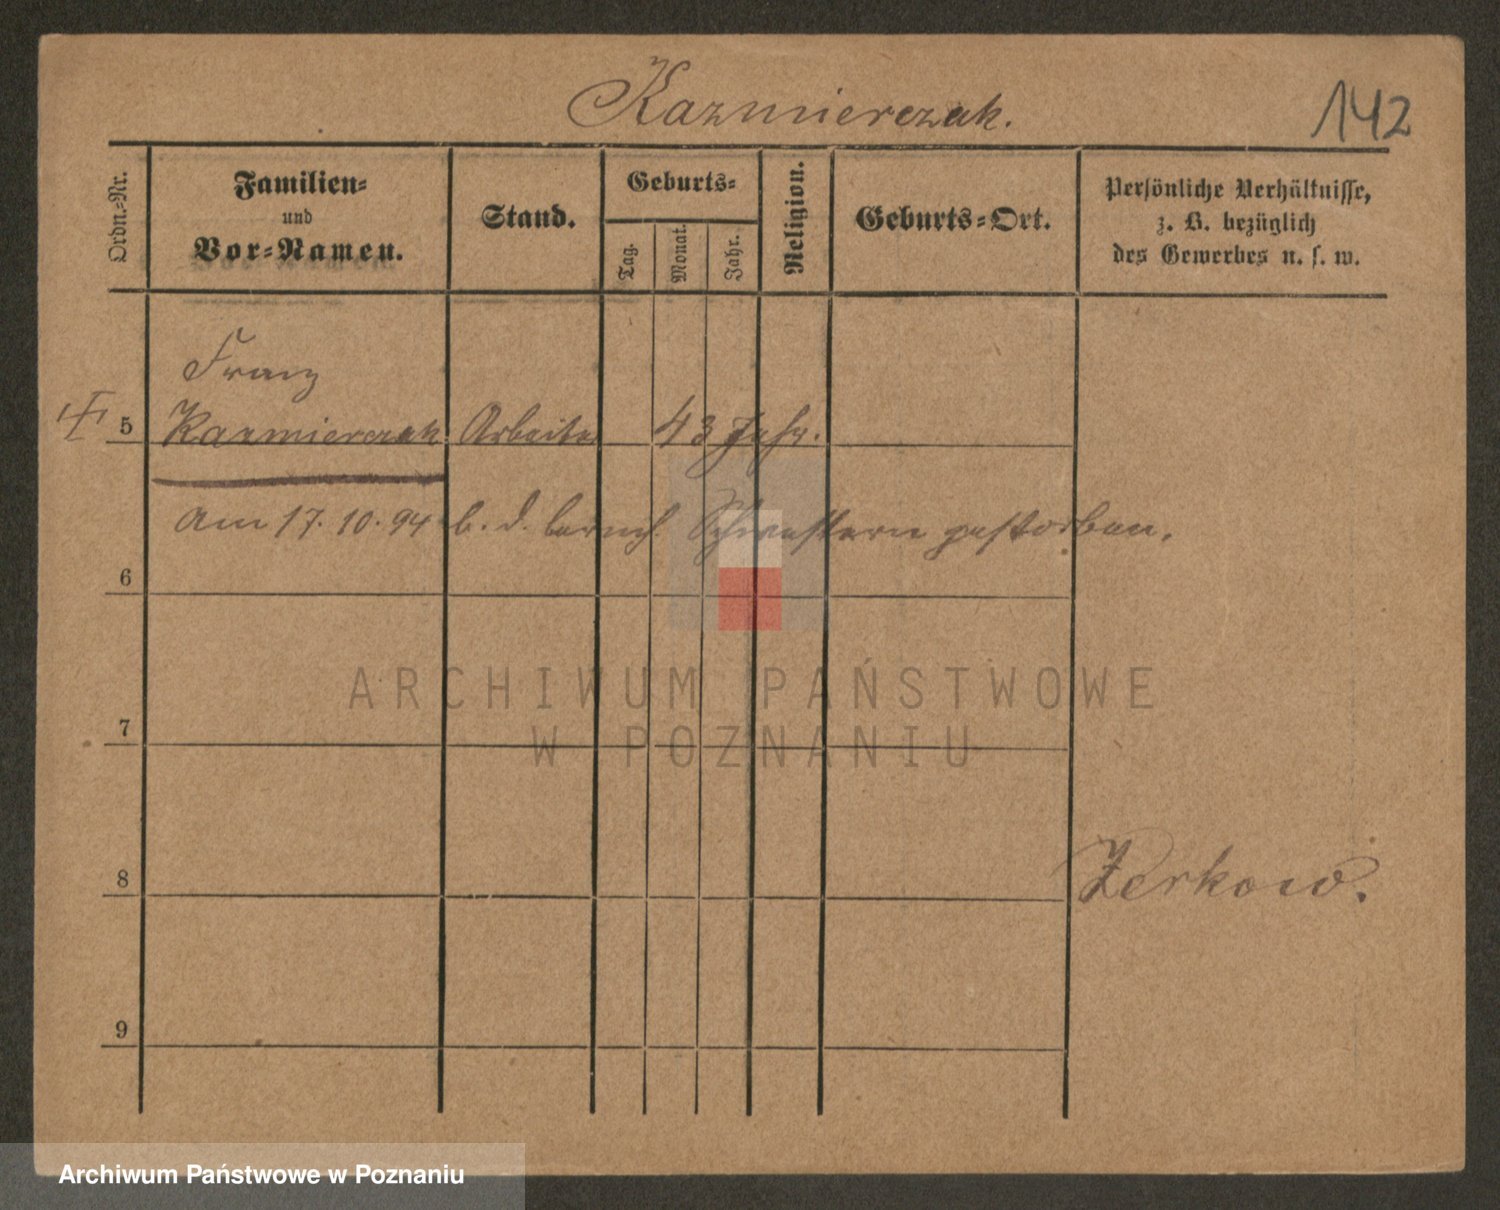 Kazmierczak.
142
Ordn.-Nr.
Familien-
und
Vor-Namen.
Stand.
Geburts-
Tag.
Monat.
Jahr.
Religion.
Geburts-Ort.
Persönliche Verhältnisse,
z. B. bezüglich
des Gewerbes u. s. w.
Franz
5 Kazmierczak Arbeiter 43 Jahr.
Am 17. 10. 94 b. d. barmh. Schwestern gestorben.
6
7
8 Zerkow.
9
ARCHIWUM PAŃSTWOWE
W POZNANIU
Archiwum Państwowe w Poznaniu